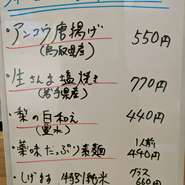 ・アンコウ唐揚げ 550円
(鳥取県産)
・生さんま塩焼き 770円
(岩手県産)
・梨の白和え 440円
(豊水)
・薬味たっぷり素麺 1人前
440円
・しげます 純米 グラス
660円